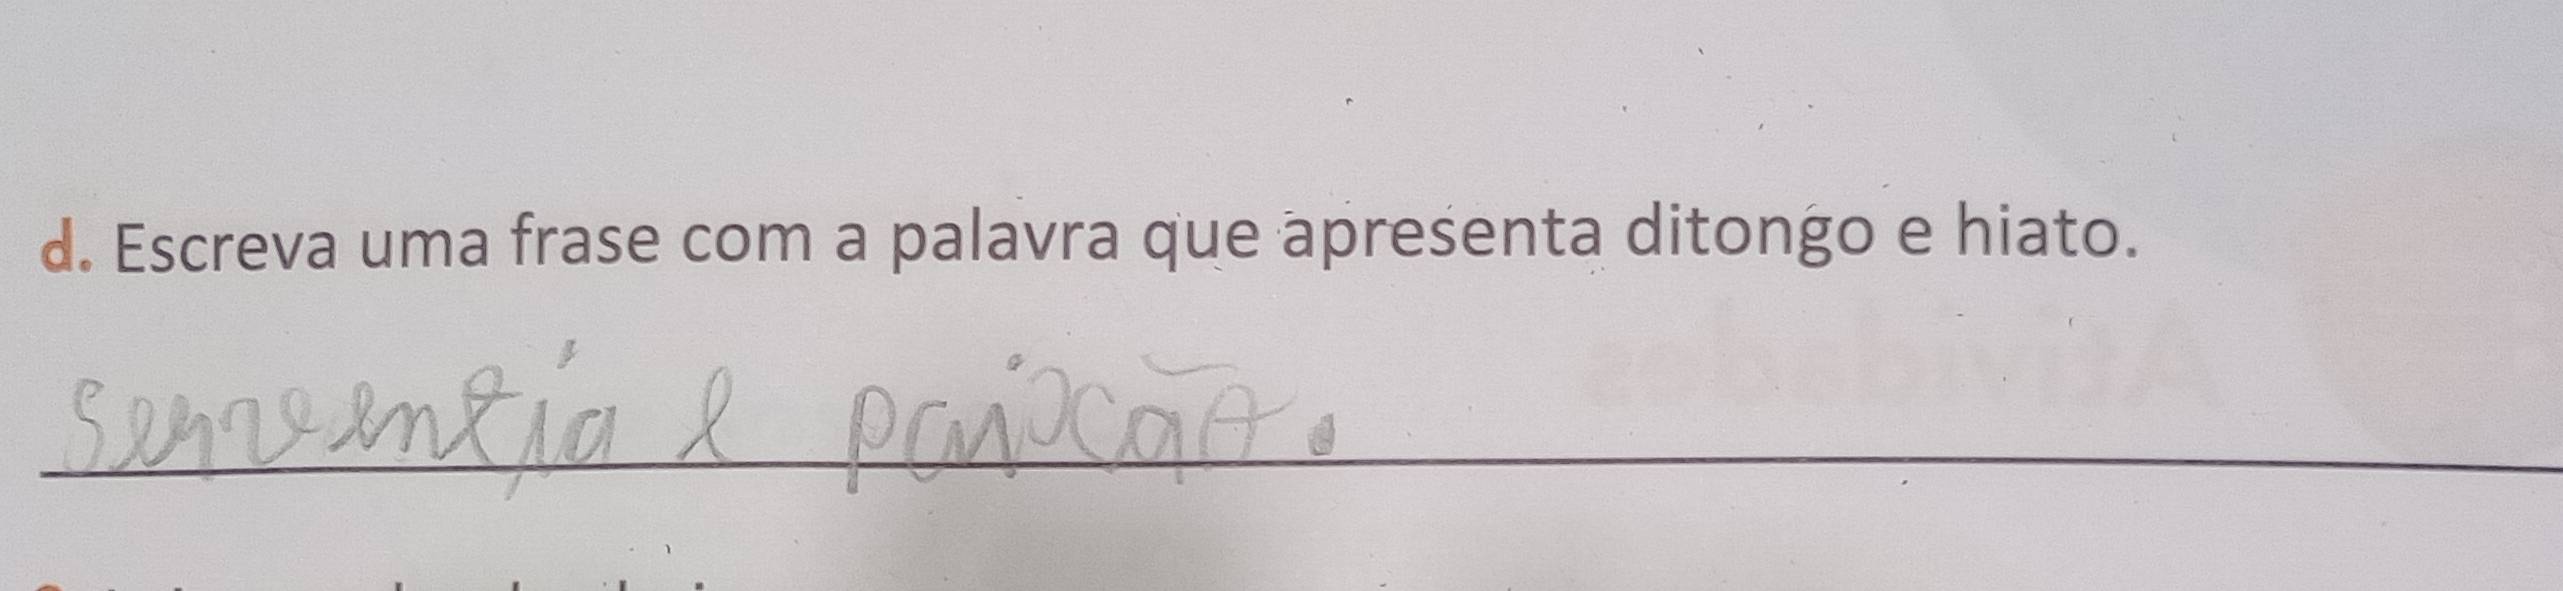 d. Escreva uma frase com a palavra que apresenta ditongo e hiato.
serventia e paixão.